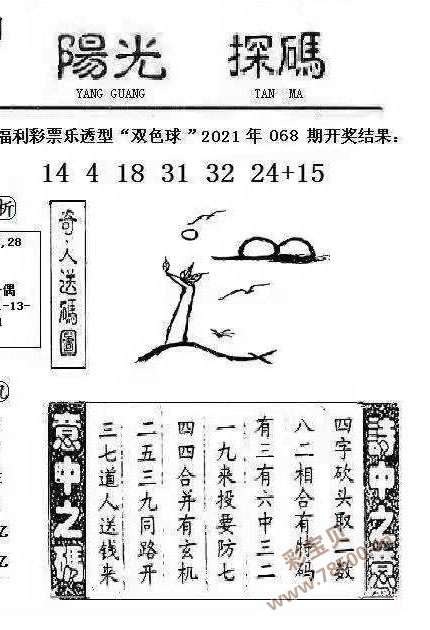 陽光 探碼
YANG GUANG TAN MA
福利彩票乐透型“双色球”2021年068期开奖结果：
14 4 18 31 32 24+15
析
,28
偶
-13-
奇·人送碼圖
詩中之意
四字砍头取二数
八二相合有特码
有三有六中三二
一九来投要防七
四四合并有玄机
二五三九同路开
三七道人送钱来
意中之碼
亿
亿
彩宝贝
www.78500.cn